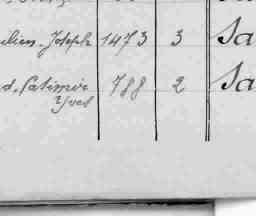 ilien-Joseph 1473 3 Sa
d, Casimir 788 2 Sa
Yves